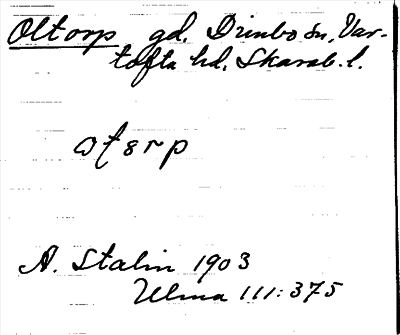 Oltorp gd. Dimbo sn, Var-
tofta hd. Skarab. l.
otsrp
A. Stalin 1903
Ulma 111:375